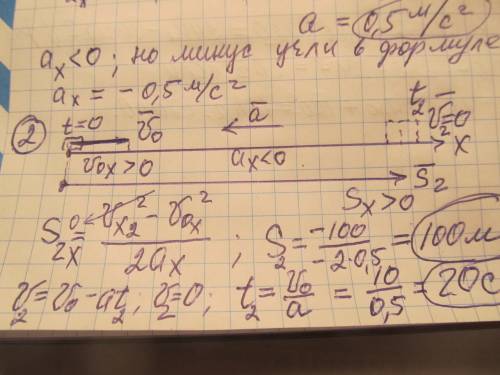 a = 0,5 м/с²
aₓ<0; но минус учли в формуле
aₓ = -0,5 м/с²
② t=0 v̄₀ ā t₂ v̄₂=0
v₀ₓ>0 aₓ<0 x
Sₓ>0 S̄₂
S₂ₓ = (vₓ₂² → 0 - v₀ₓ²) / 2aₓ ; S₂ = -100 / -2·0,5 = 100 м
v₂ = v₀ - at₂; v₂=0; t₂ = v₀/a = 10/0,5 = 20 с